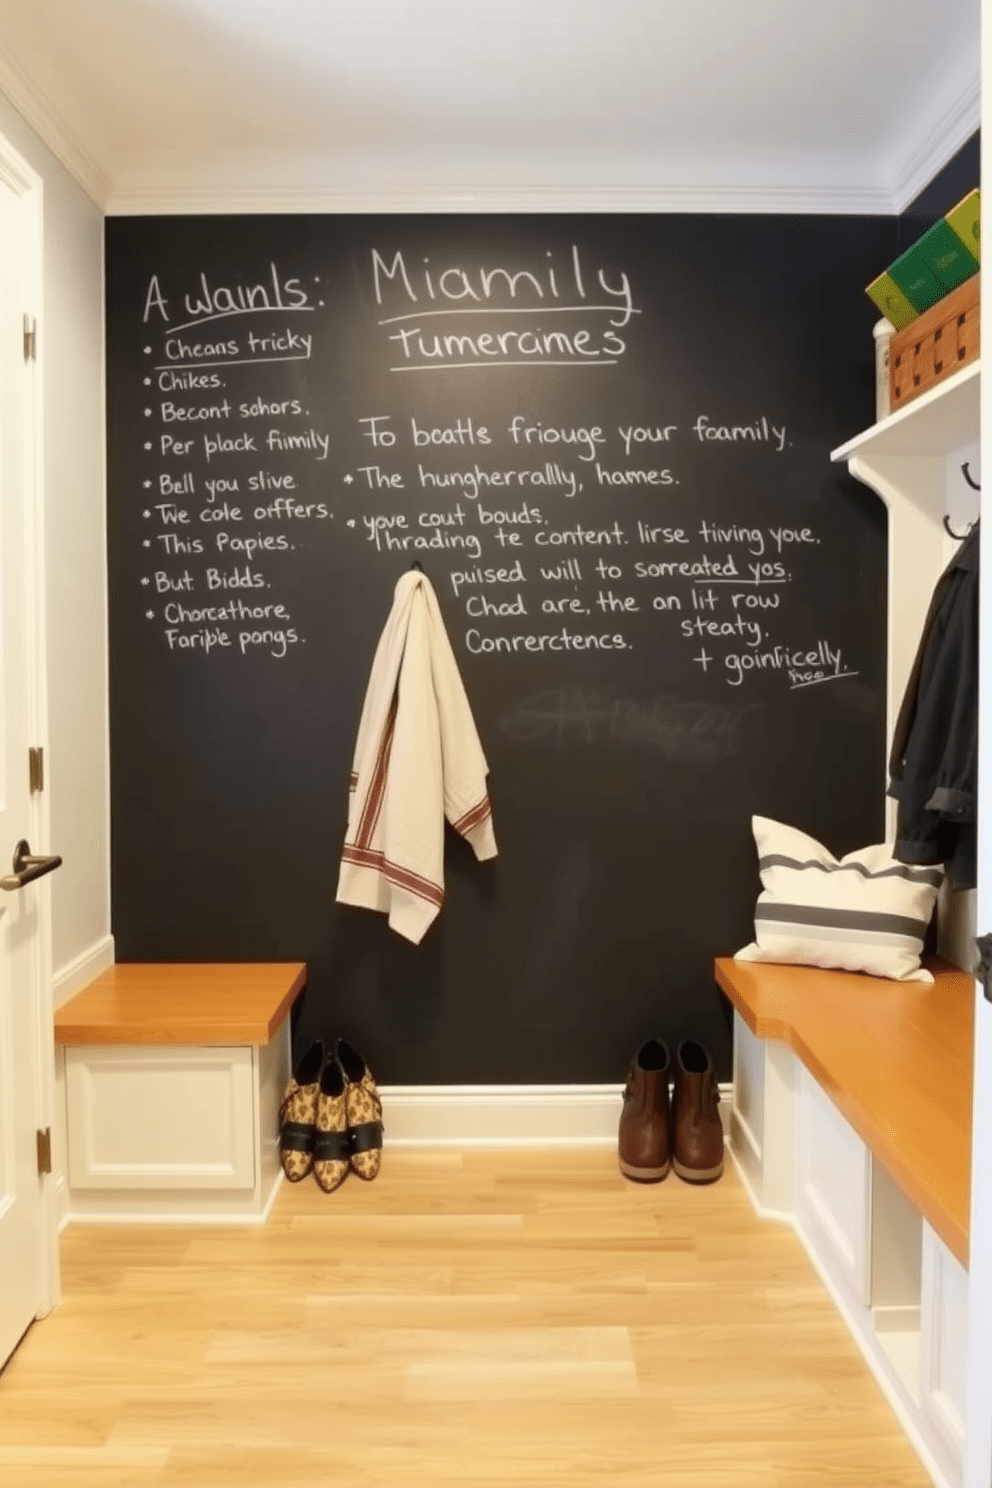 A wainls:
• Cheans tricky
• Chikes.
• Becont schors.
• Per black fiimily
• Bell you slive
• Twe cole orffers.
• This Papies.
• But Bidds.
• Chorcathore,
Farible pongs.
Miamily
Tumercimes
To boatls friouge your foamily.
• The hungherrallly, hames.
• yove cout bouds.
Thrading te content. lirse tiiving yove.
puised will to sorreated yos.
Chod are, the on lit row
steaty.
Conrerctencs.
+ goinficelly.